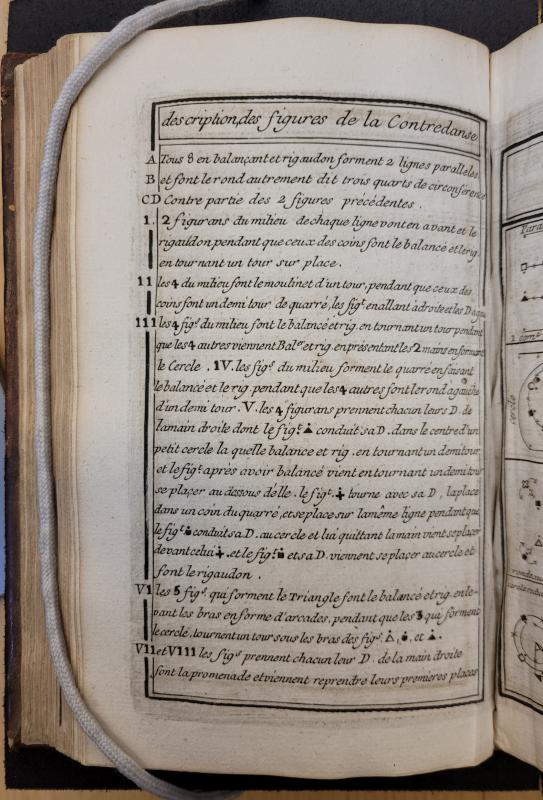 description, des figures de la Contredanse
A Tous 8 en balançant et rigaudon forment 2 lignes paralleles
B et font le rond autrement dit trois quarts de circonférence
CD Contre partie des 2 figures précédentes .
1. 2 figurans du milieu de chaque ligne vont en avant et le
rigaudon, pendant que ceux des coins font le balancé et le rig.
en tournant un tour sur place.
11 les 4 du milieu font le moulinet d'un tour, pendant que ceux des
coins font un demi tour de quarré, les figs en allant à droite et les D. à gau
111 les 4 figs du milieu font le balancé et rig. en tournant un tour pendant
que les 4 autres viennent Baler et rig. en présentant les 2 mains en formant
le Cercle . 1V. les figs du milieu forment le quarré en faisant
le balancé et le rig. pendant que les 4 autres font le rond à gauche
d'un demi tour . V. les 4 figurans prennent chacun leurs D. de
la main droite dont le figt ▲ conduit sa D. dans le centre d'un
petit cercle la quelle balance et rig. en tournant un demi tour
et le figt après avoir balancé vient en tournant un demi tour
se plaçer au dessous d'elle . le figt. ✚ tourne avec sa D, la place
dans un coin du quarré, et se place sur la même ligne pendant que
le figt conduit sa D. au cercle et lui quittant la main vient se plaçer
devant celui ✚. et le figt et sa D. viennent se plaçer au cercle et
font le rigaudon .
V1 les 5 figs qui forment le Triangle font le balancé et rig. en le-
vant les bras en forme d'arcades, pendant que les 3 qui forment
le cerclé, tournent un tour sous les bras des figs. et
V11 et V111 les figs prennent chacun leur D. de la main droite
font la promenade et viennent reprendre leurs premieres places
Para
cercle